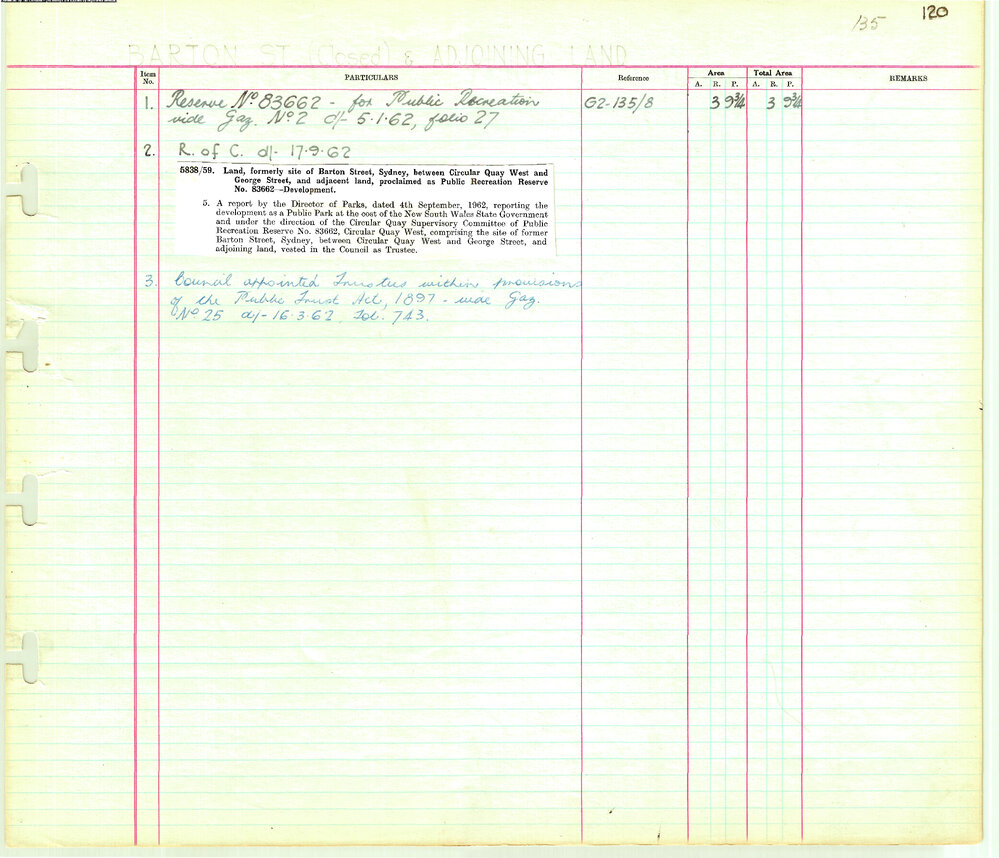 135
120
BARTON ST (Closed) & ADJOINING LAND
Item No.
PARTICULARS
Reference
Area
Total Area
REMARKS
A. R. P. A. R. P.
1. Reserve No 83662 - for Public Recreation G2-135/8 3 9¾ 3 9¾
vide Gaz. No 2 d/- 5.1.62, folio 27
2. R. of C. d/- 17.9.62
5838/59. Land, formerly site of Barton Street, Sydney, between Circular Quay West and
George Street, and adjacent land, proclaimed as Public Recreation Reserve
No. 83662—Development.
5. A report by the Director of Parks, dated 4th September, 1962, reporting the
development as a Public Park at the cost of the New South Wales State Government
and under the direction of the Circular Quay Supervisory Committee of Public
Recreation Reserve No. 83662, Circular Quay West, comprising the site of former
Barton Street, Sydney, between Circular Quay West and George Street, and
adjoining land, vested in the Council as Trustee.
3. Council appointed Trustees within provisions
of the Public Trust Act, 1897 - vide Gaz.
No 25 d/- 16.3.62, Fol. 743.